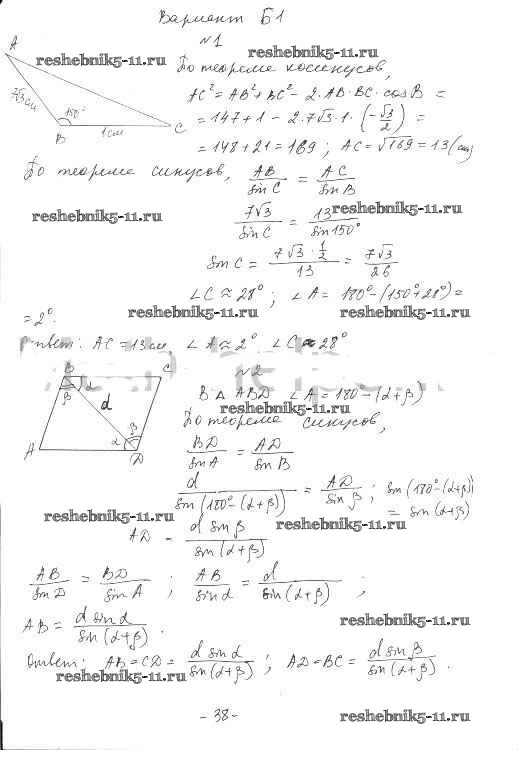 Вариант Б1
№1
reshebnik5-11.ru
reshebnik5-11.ru
По теореме косинусов,
A
7√3 см
150°
B
1 см
C
AC² = AB² + BC² - 2·AB·BC·cosB =
= 147 + 1 - 2·7√3·1·(-√3/2) =
= 148 + 21 = 169; AC = √169 = 13 (см)
По теореме синусов, AB/sinC = AC/sinB
reshebnik5-11.ru
reshebnik5-11.ru
7√3/sinC = 13/sin150°
sinC = (7√3·1/2)/13 = 7√3/26
∠C ≈ 28°; ∠A = 180° - (150° + 28°) =
= 2°.
reshebnik5-11.ru
reshebnik5-11.ru
Ответ: AC = 13 см, ∠A ≈ 2°, ∠C ≈ 28°
№2
B
C
α
β
d
β
α
A
D
В △ ABD ∠A = 180 - (α+β)
reshebnik5-11.ru
По теореме синусов,
BD/sinA = AD/sinB
d/sin(180° - (α+β)) = AD/sinβ; sin(180° - (α+β)) = sin(α+β)
reshebnik5-11.ru
reshebnik5-11.ru
AD = d sinβ/sin(α+β)
AB/sinD = BD/sinA; AB/sinα = d/sin(α+β);
AB = d sinα/sin(α+β).
reshebnik5-11.ru
Ответ: AB = CD = d sinα/sin(α+β); AD = BC = d sinβ/sin(α+β).
reshebnik5-11.ru
reshebnik5-11.ru
- 38 -
reshebnik5-11.ru